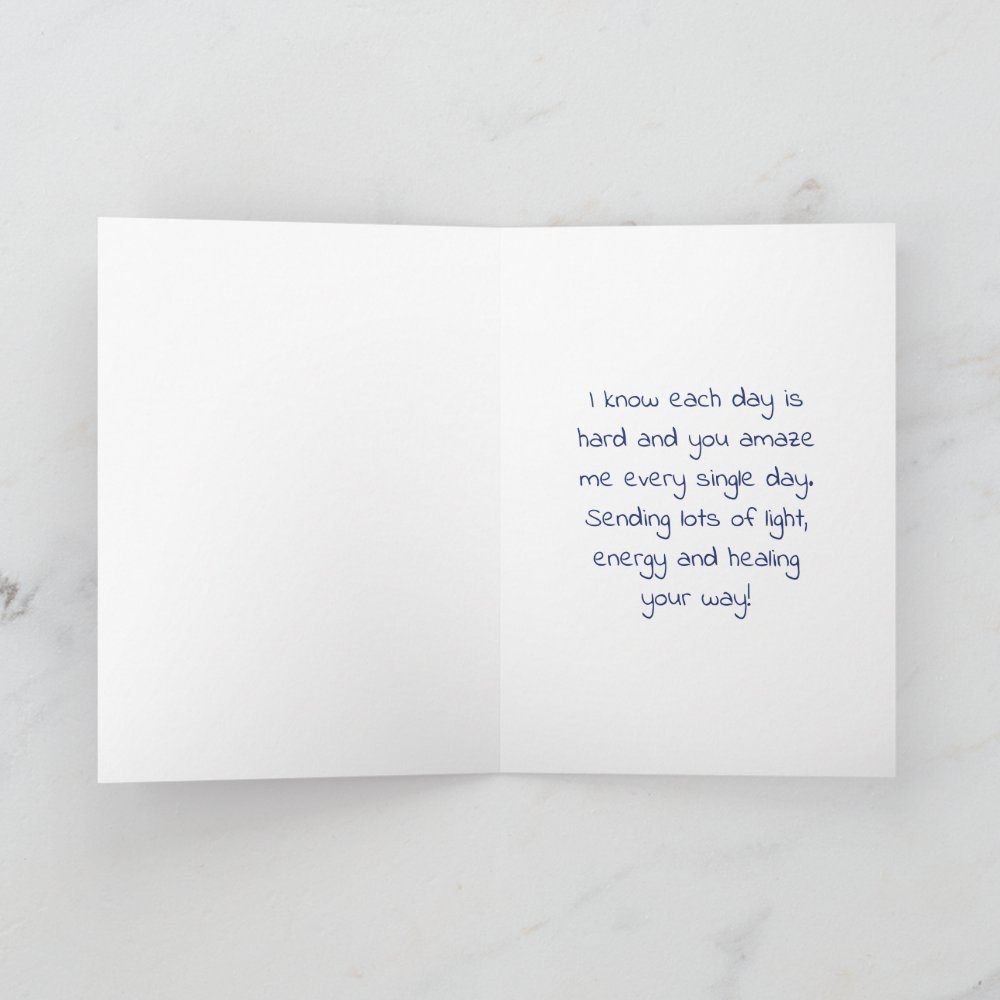 I know each day is
hard and you amaze
me every single day.
Sending lots of light,
energy and healing
your way!